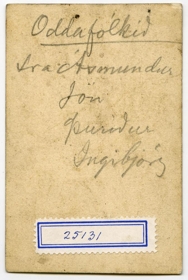 Oddafólkið
Sra Ásmundur
Jón
Þuríður
Ingibjörg
25131